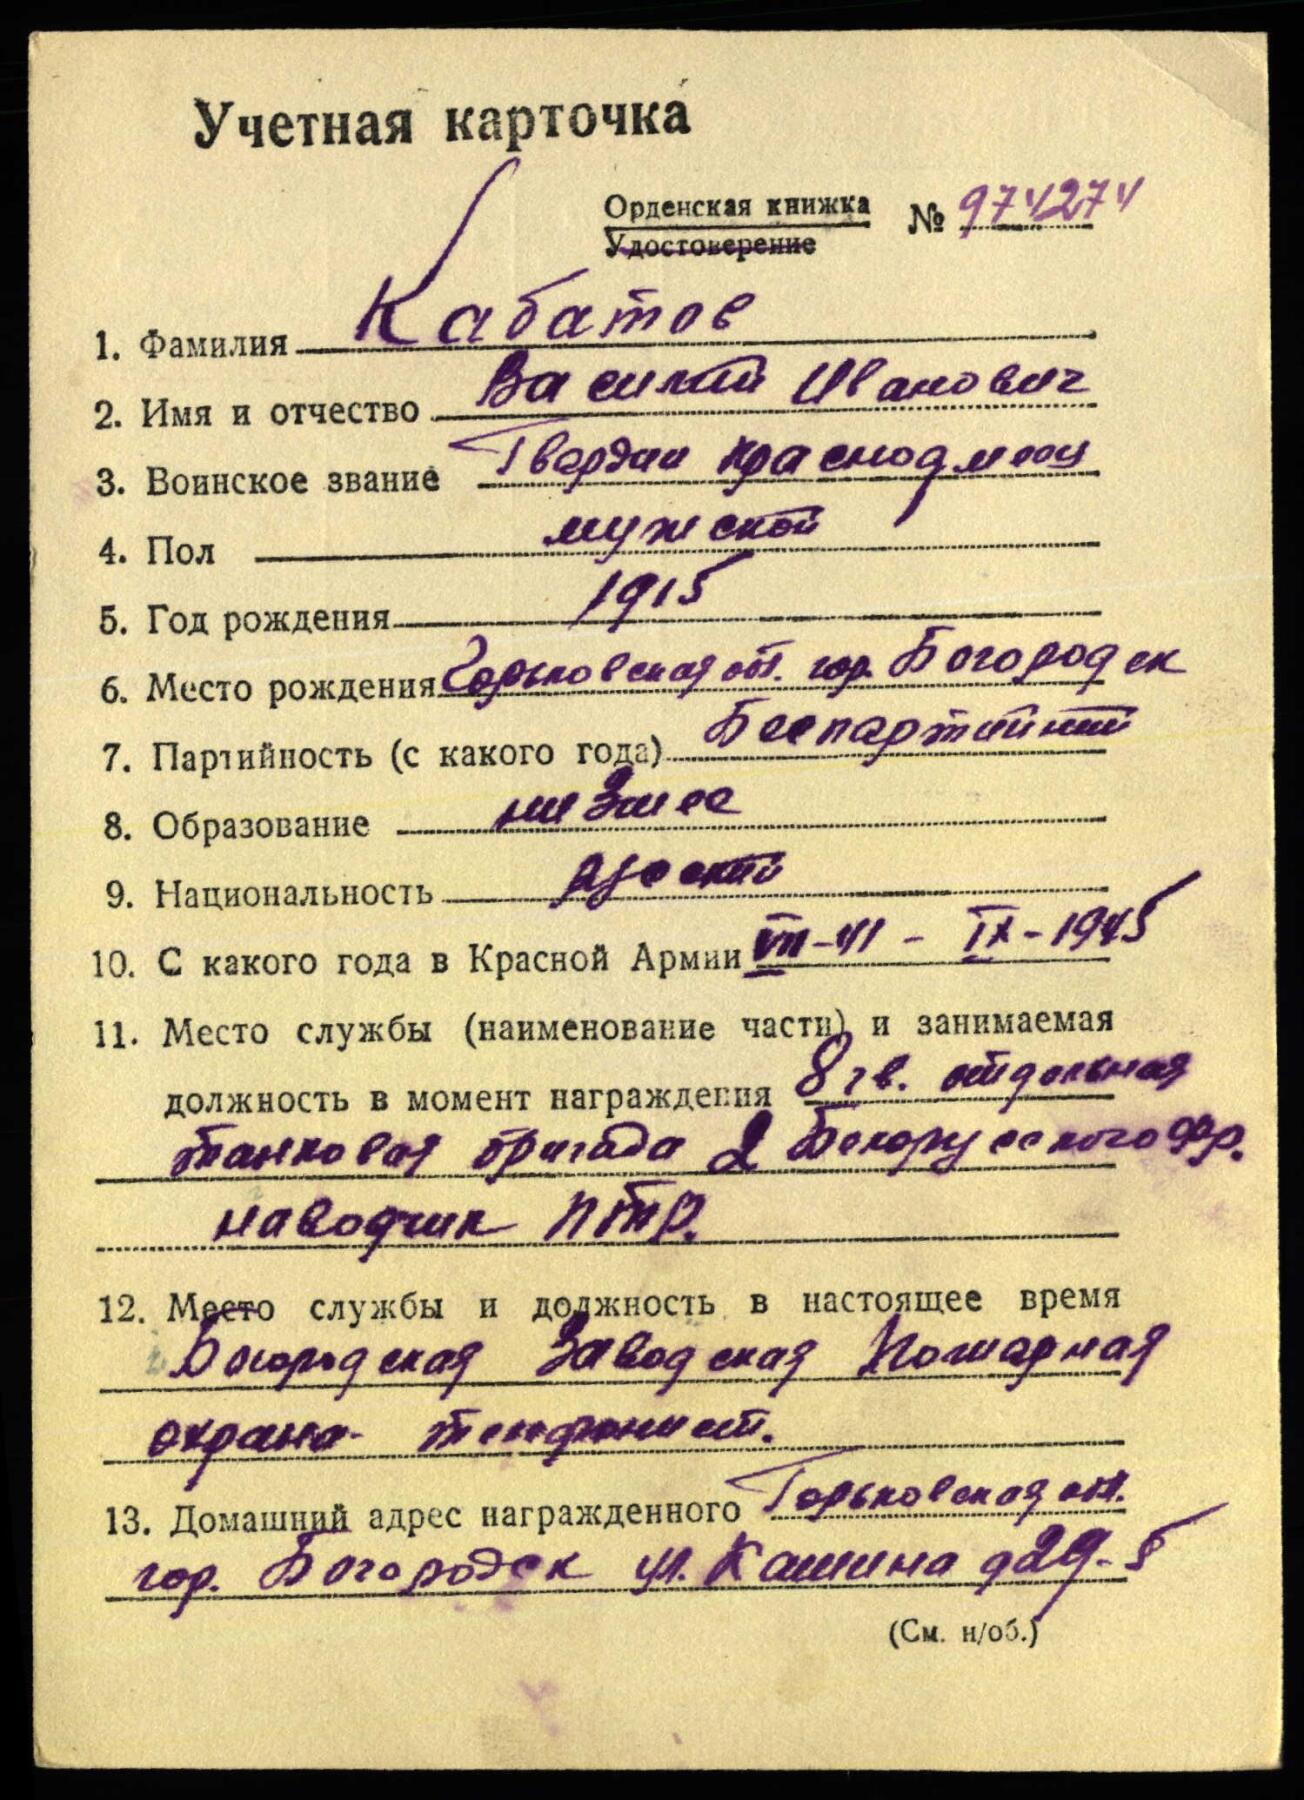 Учетная карточка
Орденская книжка № 974274
Удостоверение
1. Фамилия Кабатов
2. Имя и отчество Василий Иванович
3. Воинское звание Гвардии красноармеец
4. Пол мужской
5. Год рождения 1915
6. Место рождения Горьковская обл. гор. Богородск
7. Партийность (с какого года) Беспартийный
8. Образование низшее
9. Национальность русский
10. С какого года в Красной Армии VII-41 - IX-1945
11. Место службы (наименование части) и занимаемая
должность в момент награждения 8 гв. отдельная
танковая бригада 2 Белорусского фр.
наводчик ПТР.
12. Место службы и должность в настоящее время
Богородская Заводская Пожарная
охрана телефонист.
13. Домашний адрес награжденного Горьковская обл.
гор. Богородск ул. Кашина д 29-5
(См. н/об.)